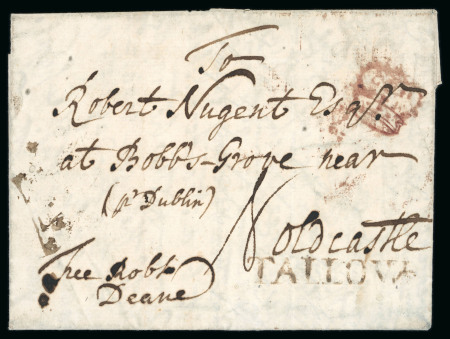 To
Robert Nugent Esqr.
at Bobbs-Grove near
(pr Dublin)
Oldcastle
TALLOW
Free Robt
Deane